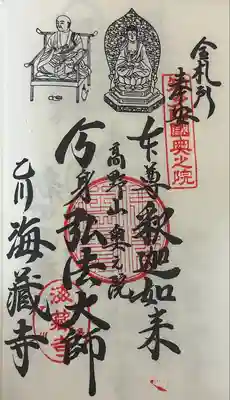 奉安
本尊釈迦如来
高野山奥之院
今身弘法大師
乙川海蔵寺
奥之院
海蔵寺